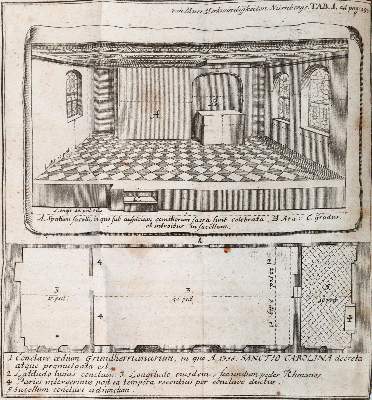 von Murr Merkwürdigkeiten Nürnbergs. TAB. I. ad pag.
A
B
A. Spatium sacelli, in quo sub auspiciam comitiorum sacra sunt celebrata. B. Ara. C. gradus,
ob introitus in sacellum.
1
4
3
4
3
5
1 Conclave ædium Grundherrianarum, in quo A. 1356. SANCTIO CAROLINA decreta
atque promulgata est.
2 Latitudo huius conclavis. 3 Longitudo eiusdem, secundum pedes Rhenanos.
4 Paries intergerinus post ea tempora recentius per conclave ductus.
5 Sacellum conclavi adiunctum.